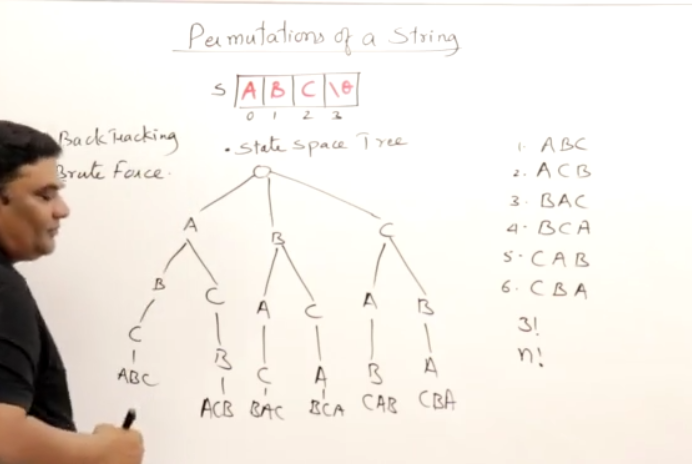 Permutations of a String
S A B C \0
0 1 2 3
BackTracking
Brute Force.
• State Space Tree
A B C
B C A C A B
C B C A B A
ABC ACB BAC BCA CAB CBA
1. ABC
2. ACB
3. BAC
4. BCA
5. CAB
6. CBA
3!
n!